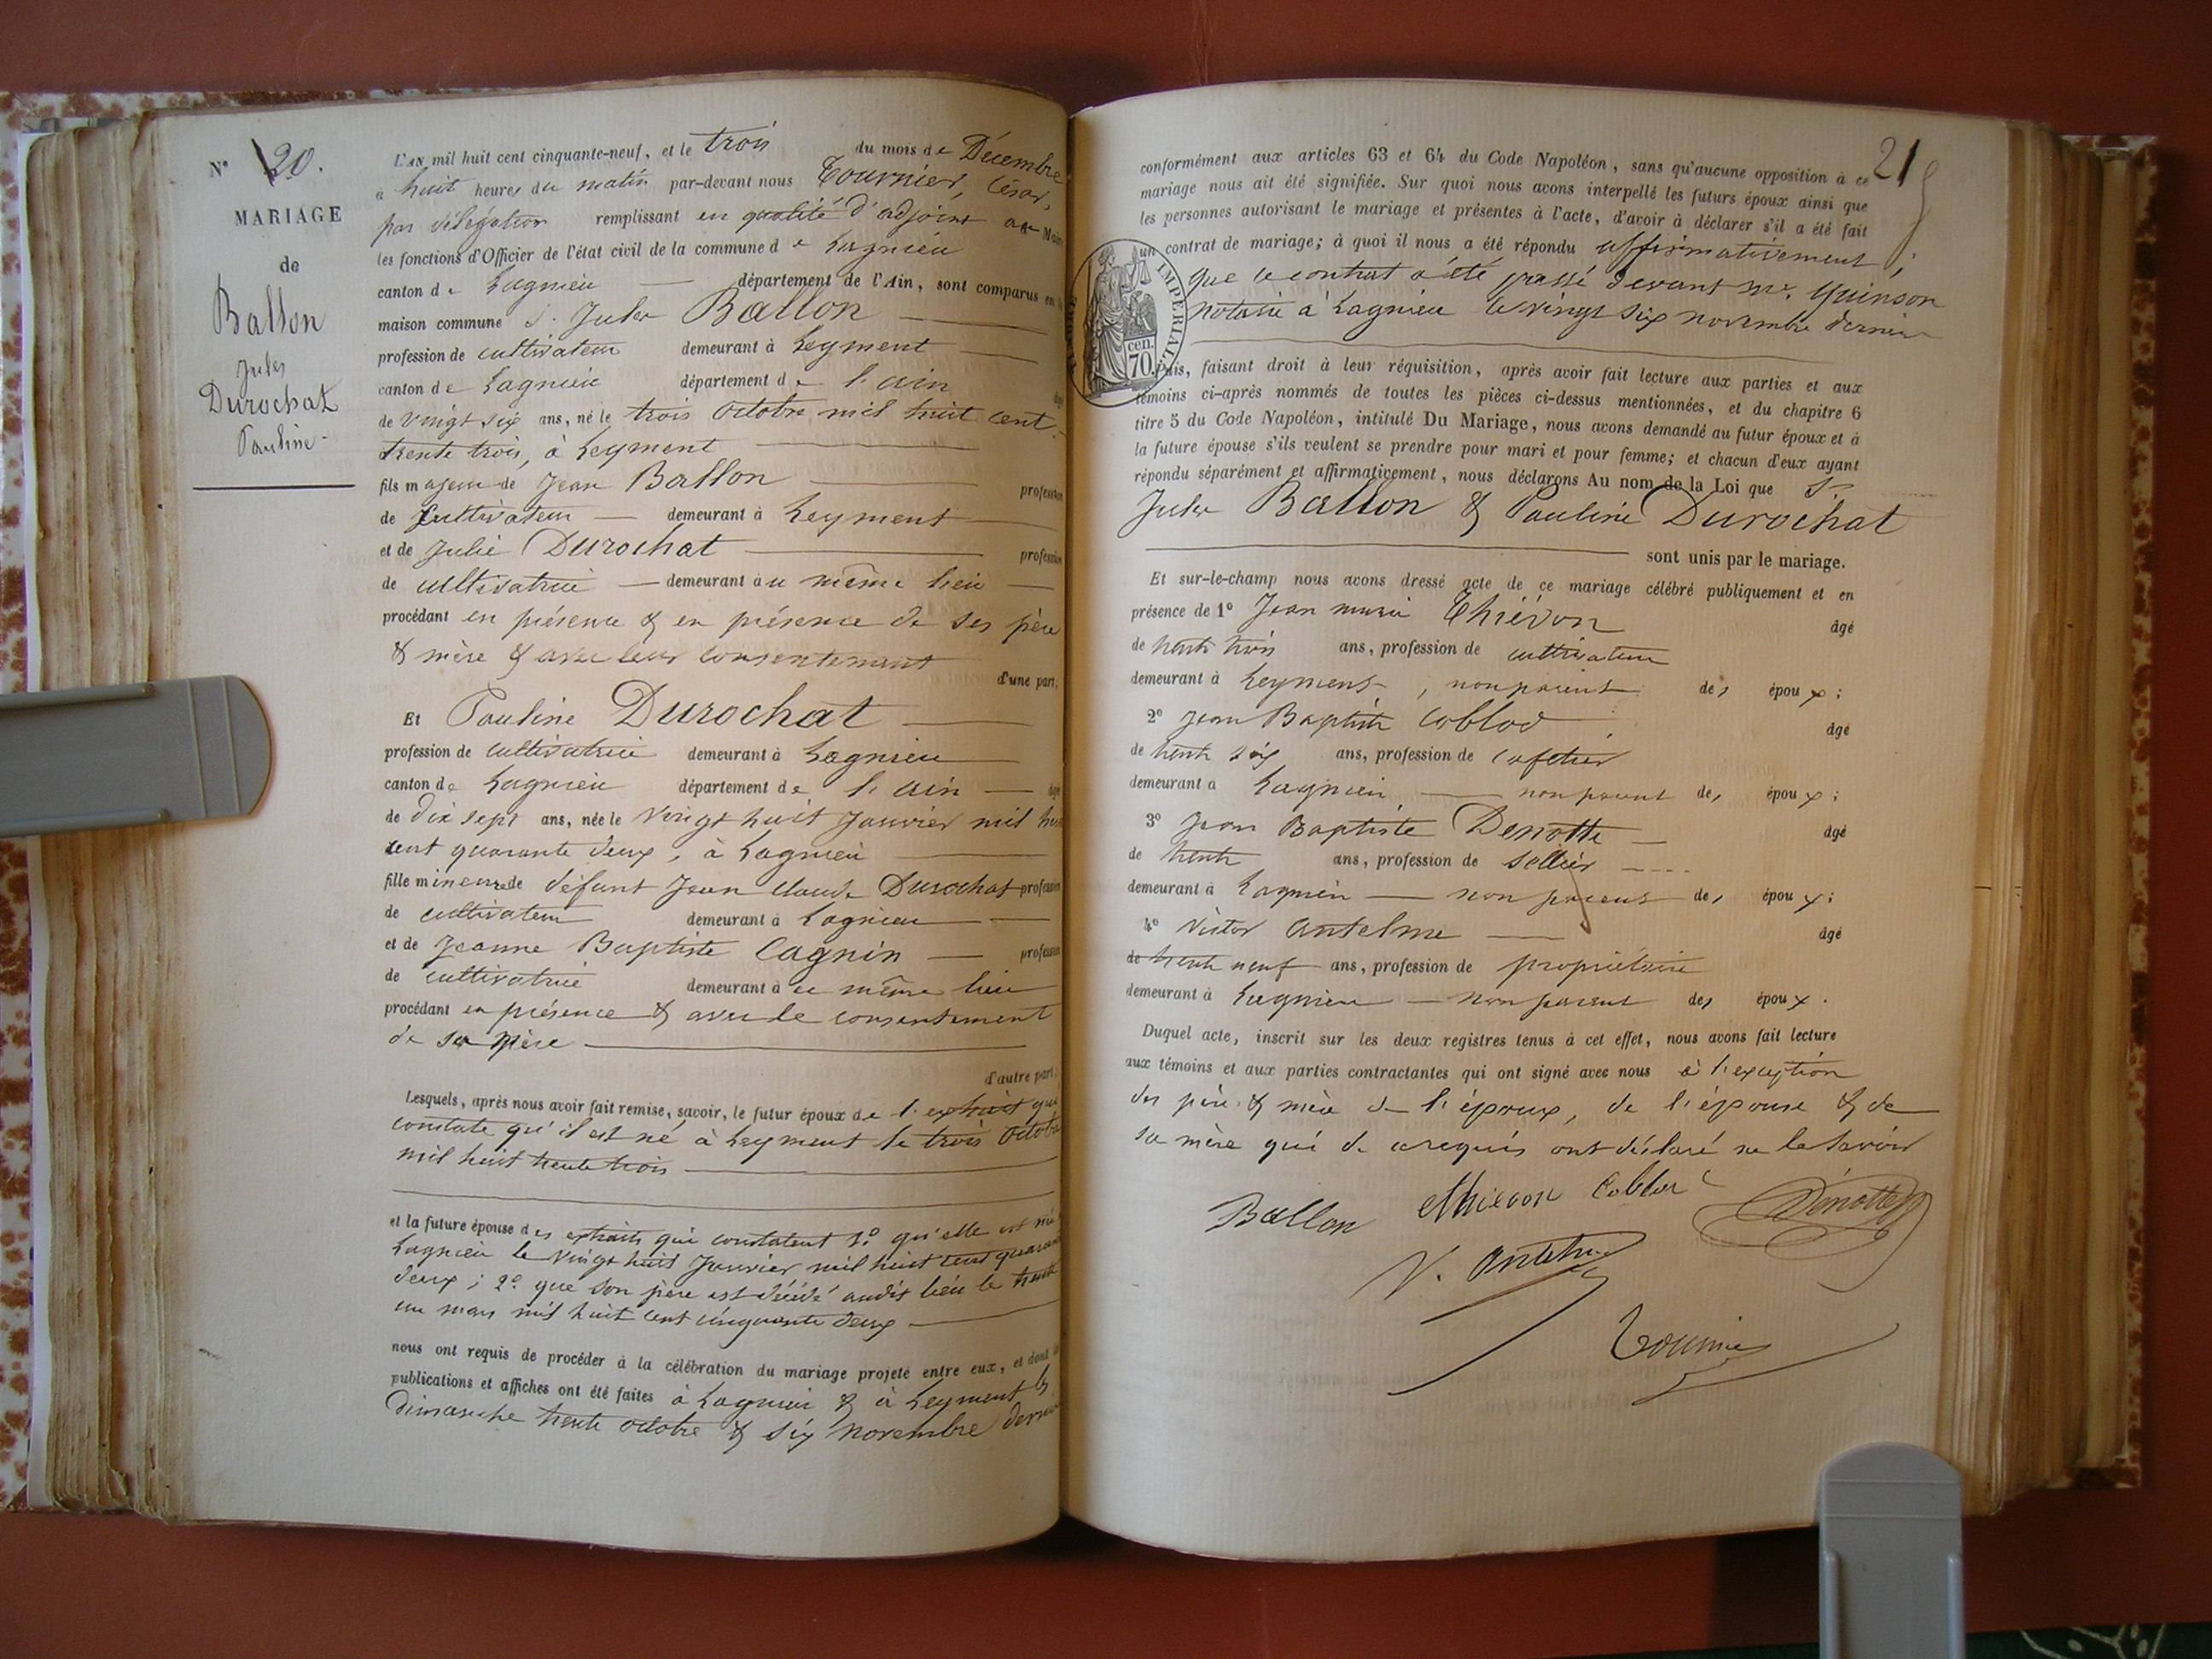 N° 20.
MARIAGE
de
Ballon
Jules
Durochat
Pauline
L'AN mil huit cent cinquante-neuf, et le trois du mois de Décembre
à huit heures du matin par-devant nous Tournier, César,
par délégation remplissant en qualité d'adjoint au Maire
les fonctions d'Officier de l'état civil de la commune de Lagnieu
canton de Lagnieu département de l'Ain, sont comparus en la
maison commune S. Jules Ballon
profession de cultivateur demeurant à Leyment
canton de Lagnieu département de l'ain âgé
de vingt six ans, né le trois octobre mil huit cent
trente trois, à Leyment
fils majeur de Jean Ballon profession
de cultivateur demeurant à Leyment
et de Julie Durochat profession
de cultivatrice demeurant au même lieu
procédant en présence & en présence de ses père
& mère & avec leur consentement
d'une part;
Et Pauline Durochat
profession de cultivatrice demeurant à Lagnieu
canton de Lagnieu département de l'ain âgé
de dix sept ans, née le vingt huit Janvier mil huit
cent quarante deux, à Lagnieu
fille mineure de défunt Jean Claude Durochat profession
de cultivateur demeurant à Lagnieu
et de Jeanne Baptiste Cagnin profession
de cultivatrice demeurant à ce même lieu
procédant en présence & avec le consentement
de sa mère
d'autre part.
Lesquels, après nous avoir fait remise, savoir, le futur époux de l'extrait qui
constate qu'il est né à Leyment le trois octobre
mil huit trente trois
et la future épouse des extraits qui constatent 1° qu'elle est née
Lagnieu le vingt huit Janvier mil huit cent quarante
deux; 2° que son père est décédé audit lieu le trente
un mars mil huit cent cinquante deux
nous ont requis de procéder à la célébration du mariage projeté entre eux, et dont les
publications et affiches ont été faites à Lagnieu & à Leyment les
dimanche trente octobre & six novembre dernier
21
conformément aux articles 63 et 64 du Code Napoléon, sans qu'aucune opposition à ce
mariage nous ait été signifiée. Sur quoi nous avons interpellé les futurs époux ainsi que
les personnes autorisant le mariage et présentes à l'acte, d'avoir à déclarer s'il a été fait
un contrat de mariage; à quoi il nous a été répondu affirmativement,
que le contrat a été passé devant Me. Quinson
notaire à Lagnieu le vingt six novembre dernier
TIMBRE IMPERIAL
70 cen.
Puis, faisant droit à leur réquisition, après avoir fait lecture aux parties et aux
témoins ci-après nommés de toutes les pièces ci-dessus mentionnées, et du chapitre 6
titre 5 du Code Napoléon, intitulé Du Mariage, nous avons demandé au futur époux et à
la future épouse s'ils veulent se prendre pour mari et pour femme; et chacun d'eux ayant
répondu séparément et affirmativement, nous déclarons Au nom de la Loi que Sr
Jules Ballon & Pauline Durochat
sont unis par le mariage.
Et sur-le-champ nous avons dressé acte de ce mariage célébré publiquement et en
présence de 1° Jean marie Thiévon âgé
de trente trois ans, profession de cultivateur
demeurant à Leyment, non parent des époux;
2° Jean Baptiste Coblod âgé
de trente six ans, profession de cafetier
demeurant à Lagnieu non parent des époux;
3° Jean Baptiste Denotte âgé
de trente ans, profession de sellier
demeurant à Lagnieu non parent des époux;
4° Victor Antelme âgé
de trente neuf ans, profession de propriétaire
demeurant à Lagnieu non parent des époux.
Duquel acte, inscrit sur les deux registres tenus à cet effet, nous avons fait lecture
aux témoins et aux parties contractantes qui ont signé avec nous à l'exception
des père & mère de l'époux, de l'épouse & de
sa mère qui de ce requis ont déclaré ne le savoir
Ballon thievon Coblod Denotte
V. Antelme
Tournier